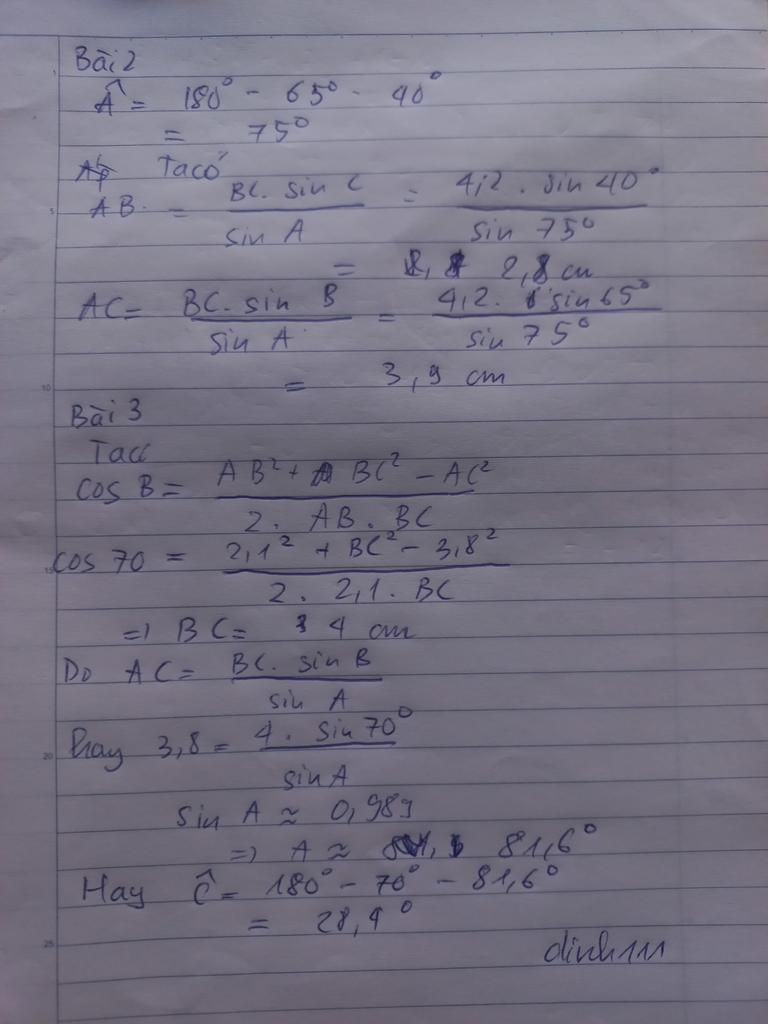 Bài 2
Â = 180° - 65° - 40°
= 75°
Ta có
AB = BC. sin C / sin A = 4,2 . sin 40° / sin 75°
= 2,8 cm
AC = BC. sin B / sin A = 4,2. sin 65° / sin 75°
= 3,9 cm
Bài 3
Ta có
cos B = AB² + BC² - AC² / 2. AB. BC
cos 70 = 2,1² + BC² - 3,8² / 2. 2,1. BC
=) BC = 4 cm
Do AC = BC. sin B / sin A
hay 3,8 = 4. sin 70° / sin A
sin A ≈ 0,989
=) A ≈ 81,6°
Hay Ĉ = 180° - 70° - 81,6°
= 28,4°
dinh111